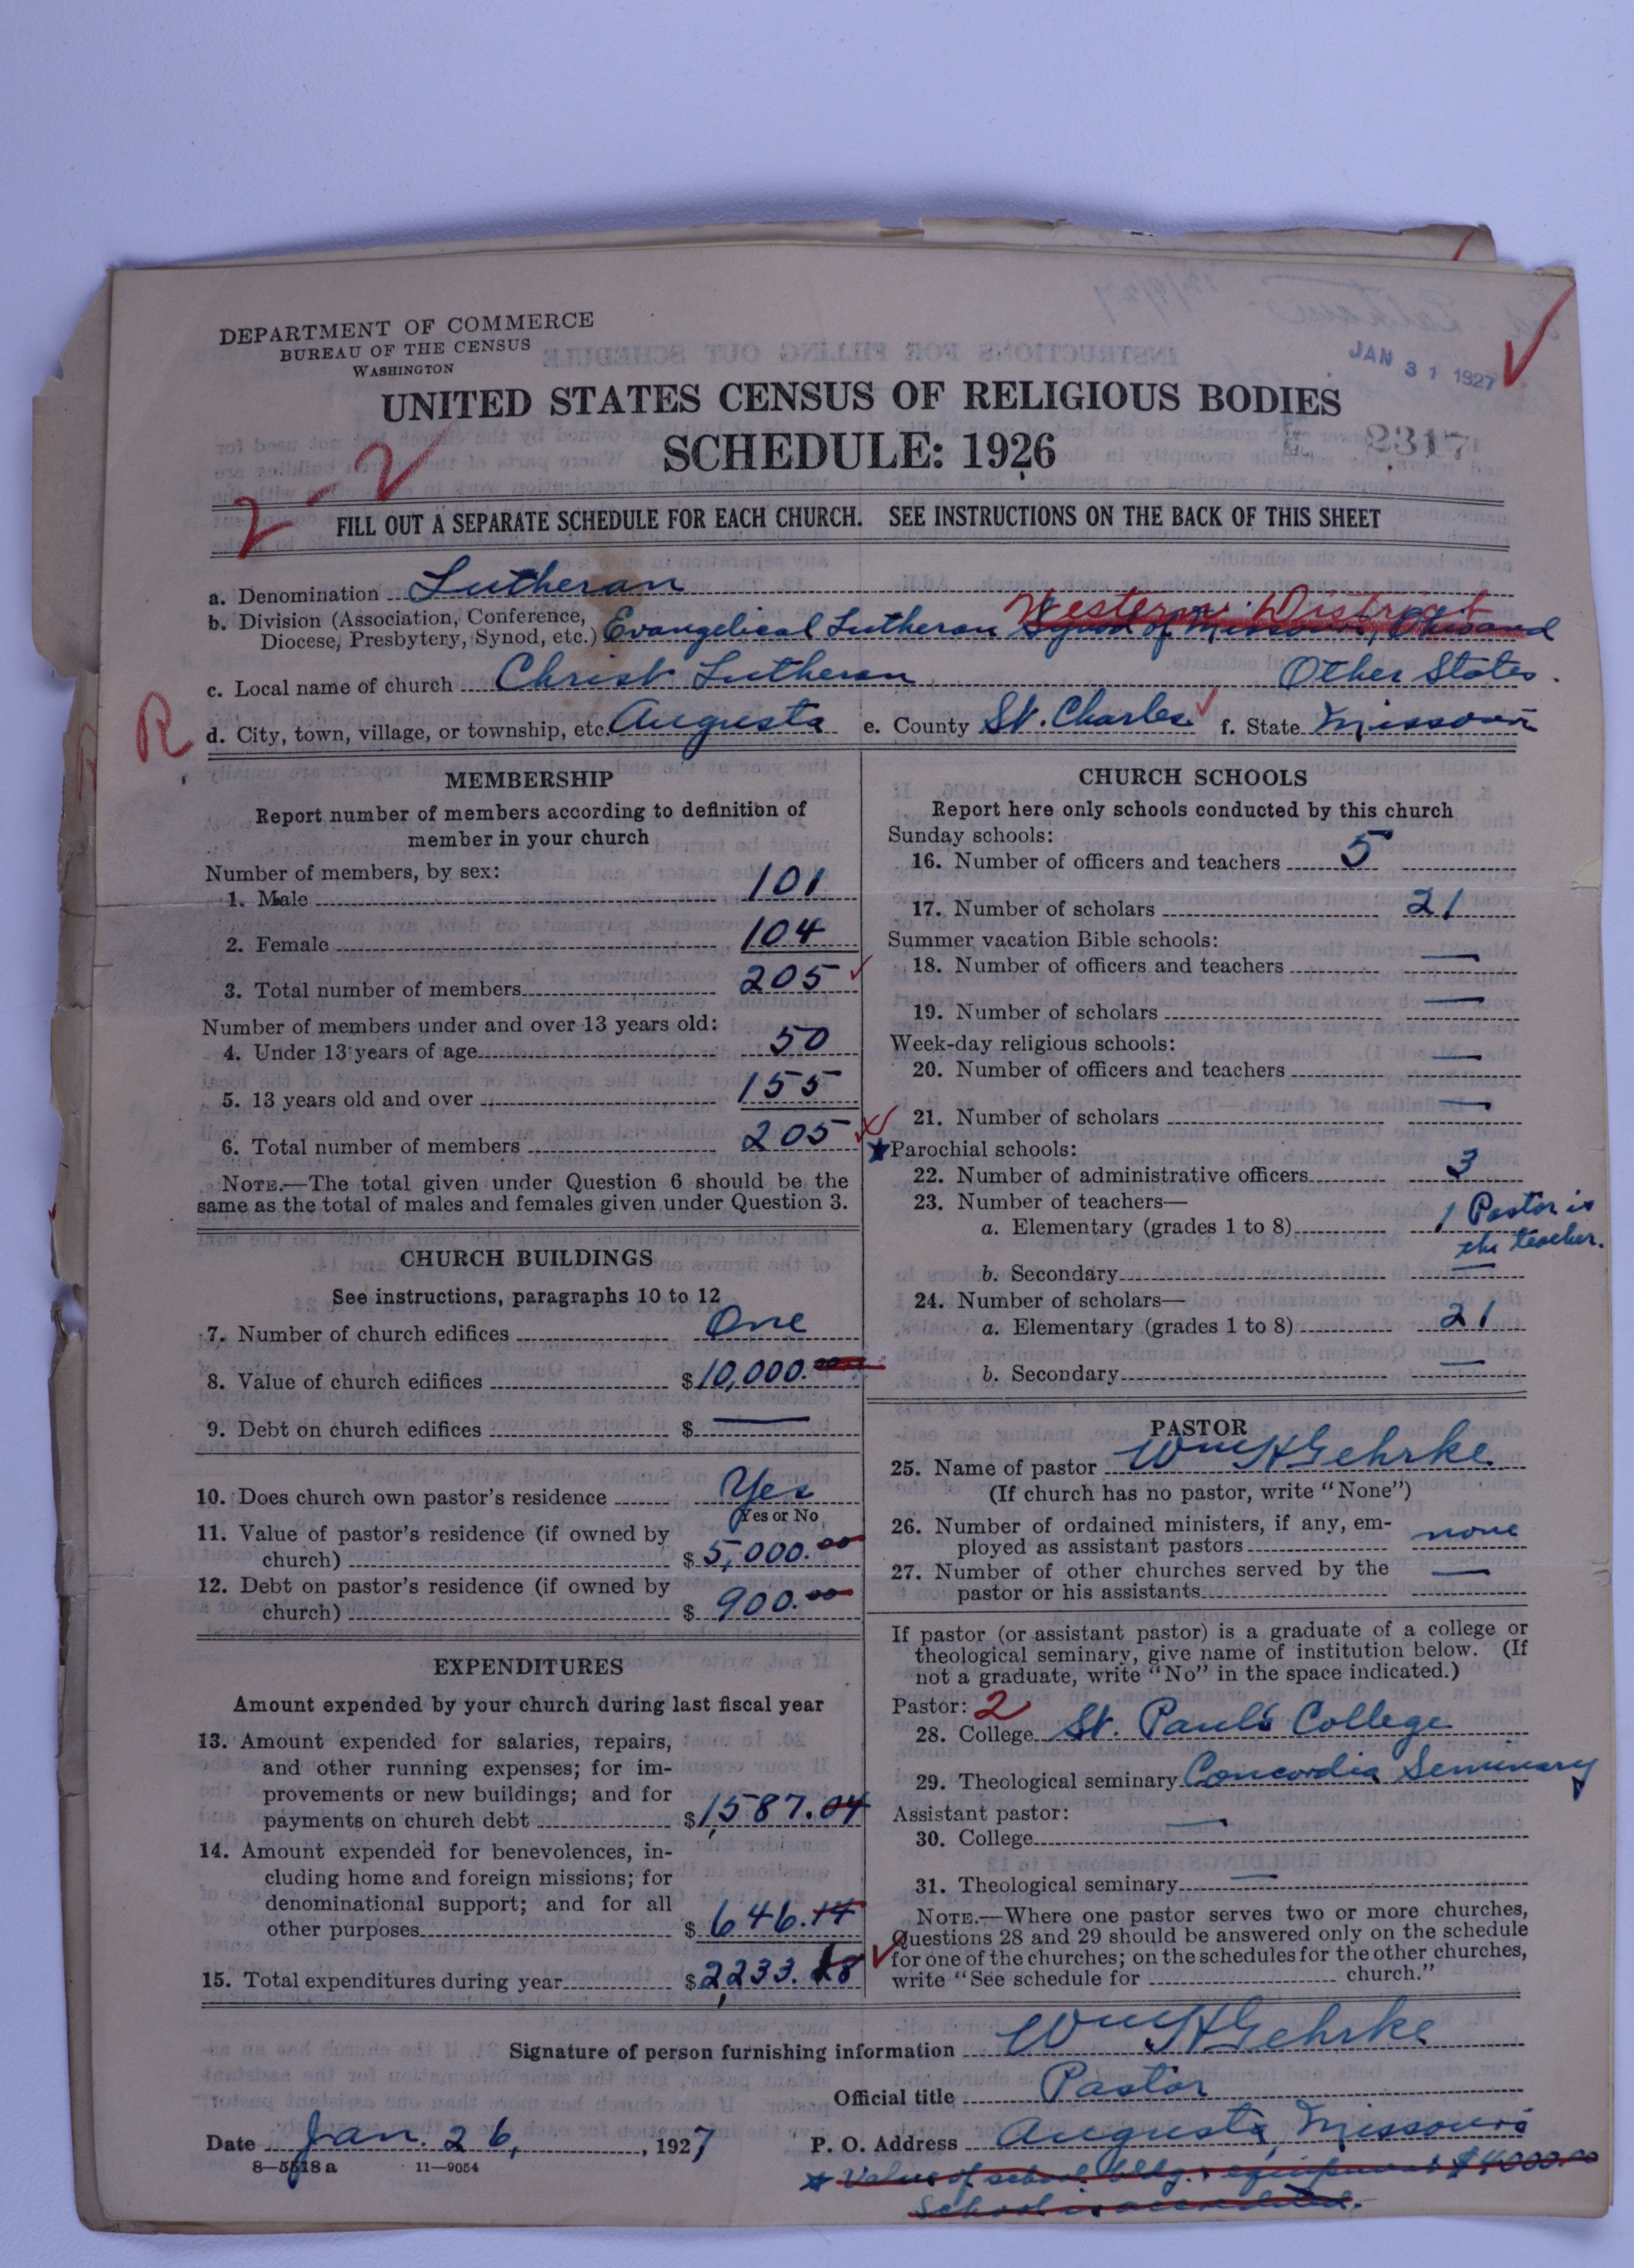 DEPARTMENT OF COMMERCE
BUREAU OF THE CENSUS
WASHINGTON
JAN 31 1927
UNITED STATES CENSUS OF RELIGIOUS BODIES
SCHEDULE: 1926
2317
2-2
FILL OUT A SEPARATE SCHEDULE FOR EACH CHURCH. SEE INSTRUCTIONS ON THE BACK OF THIS SHEET
a. Denomination Lutheran
Western District
b. Division (Association, Conference, Diocese, Presbytery, Synod, etc.) Evangelical Lutheran Synod of Missouri, Ohio and
Other States.
c. Local name of church Christ Lutheran
R
d. City, town, village, or township, etc. Augusta e. County St. Charles f. State Missouri
MEMBERSHIP
Report number of members according to definition of
member in your church
Number of members, by sex:
1. Male 101
2. Female 104
3. Total number of members 205
Number of members under and over 13 years old:
4. Under 13 years of age 50
5. 13 years old and over 155
6. Total number of members 205
NOTE.—The total given under Question 6 should be the
same as the total of males and females given under Question 3.
CHURCH BUILDINGS
See instructions, paragraphs 10 to 12
7. Number of church edifices One
8. Value of church edifices $10,000.00
9. Debt on church edifices $ —
10. Does church own pastor's residence Yes
Yes or No
11. Value of pastor's residence (if owned by
church) $5,000.00
12. Debt on pastor's residence (if owned by
church) $900.00
EXPENDITURES
Amount expended by your church during last fiscal year
13. Amount expended for salaries, repairs,
and other running expenses; for im-
provements or new buildings; and for
payments on church debt $1,587.04
14. Amount expended for benevolences, in-
cluding home and foreign missions; for
denominational support; and for all
other purposes $646.14
15. Total expenditures during year $2,233.18
CHURCH SCHOOLS
Report here only schools conducted by this church
Sunday schools:
16. Number of officers and teachers 5
17. Number of scholars 21
Summer vacation Bible schools:
18. Number of officers and teachers —
19. Number of scholars —
Week-day religious schools:
20. Number of officers and teachers —
21. Number of scholars —
★Parochial schools:
22. Number of administrative officers 3
23. Number of teachers—
a. Elementary (grades 1 to 8) 1 Pastor is
the teacher.
b. Secondary —
24. Number of scholars—
a. Elementary (grades 1 to 8) 21
b. Secondary —
PASTOR
25. Name of pastor Wm H Gehrke
(If church has no pastor, write "None")
26. Number of ordained ministers, if any, em-
ployed as assistant pastors none
27. Number of other churches served by the
pastor or his assistants —
If pastor (or assistant pastor) is a graduate of a college or
theological seminary, give name of institution below. (If
not a graduate, write "No" in the space indicated.)
Pastor: 2
28. College St. Paul's College
29. Theological seminary Concordia Seminary
Assistant pastor:
30. College —
31. Theological seminary —
NOTE.—Where one pastor serves two or more churches,
Questions 28 and 29 should be answered only on the schedule
for one of the churches; on the schedules for the other churches,
write "See schedule for church."
Signature of person furnishing information Wm H Gehrke
Official title Pastor
Date Jan. 26, 1927 P. O. Address Augusta, Missouri
8—5518a 11—9054
★ Value of school bldg. & equipment $4000.00
School is accredited.